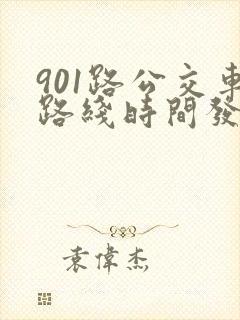 901路公交車
路綫時間發
袁偉杰